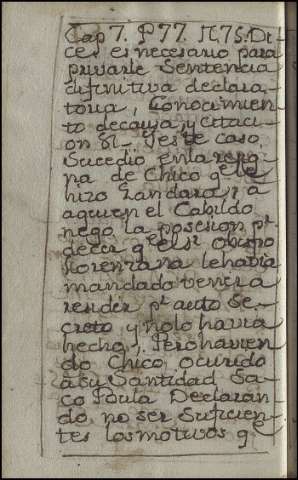 Cap 7. P 77. N. 75. Di-
ce: es necesario para
privarle Sentencia
difinitiva declara-
toria, Conocimien-
to de causa, y citaci-
on &. Y este caso
Sucedio en la
na de Chico qe le
hizo Landara, a
aquien el Cabildo
nego la posesion pr
decir qe el Sr. Obispo
Lorenzana le havia
mandado
render pr auto Se-
creto y no lo havia
hecho; Pero havien-
do Chico ocurido
a su Santidad Sa-
co Bula Declaran-
do no ser Suficien-
tes los motivos qe